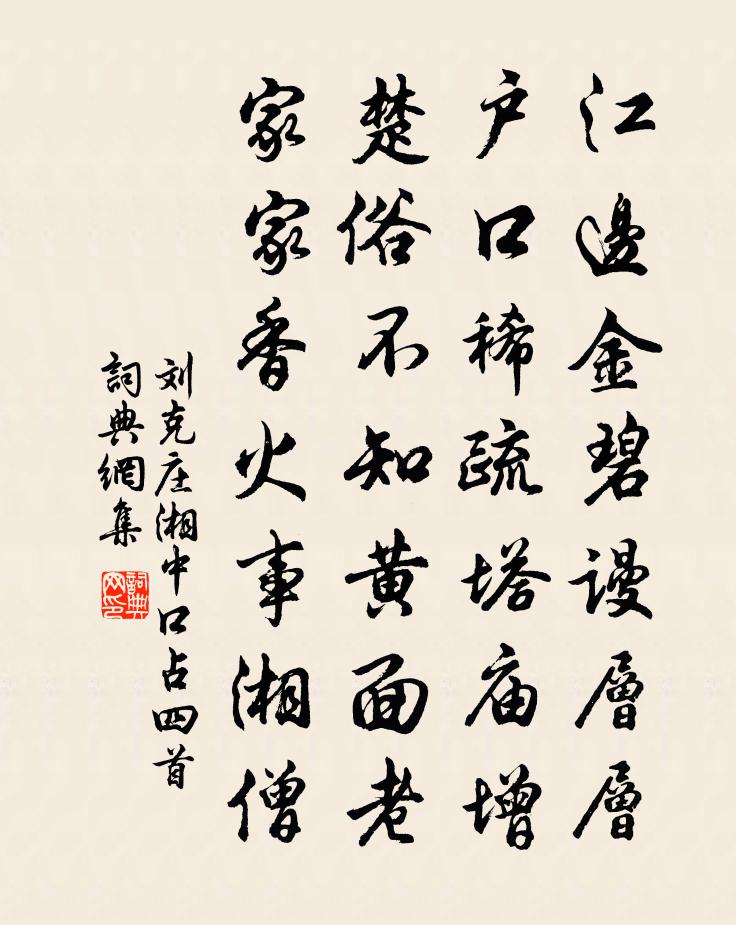 江邊金碧谩層層
户口稀疏塔庙增
楚俗不知黄面老
家家香火事湘僧
刘克庄湘中口占四首
詞典網集
詞典网印